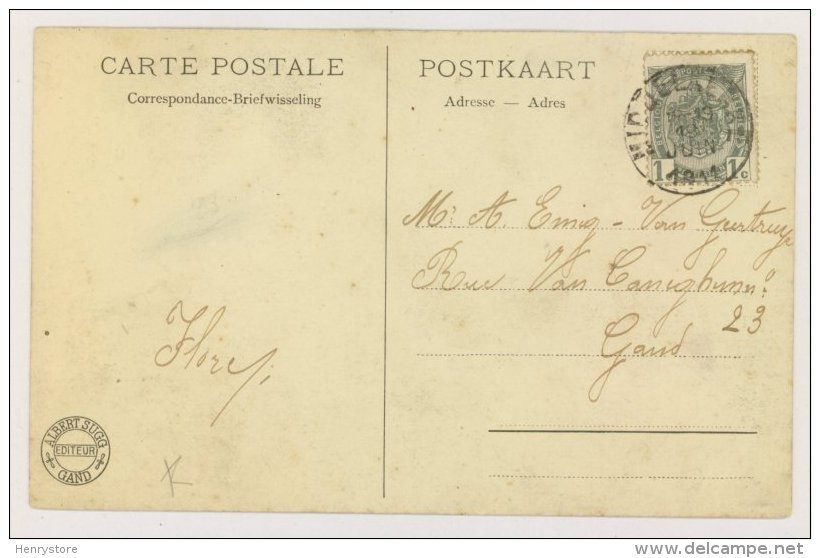 CARTE POSTALE
Correspondance-Briefwisseling
POSTKAART
Adresse — Adres
JUIN
1911
1 c 1 c
Mr A. Emig - Van Geertruye
Rue Van
23
Gand
Flore
ALBERT SUGG
EDITEUR
GAND
Henrystore
delcampe.net